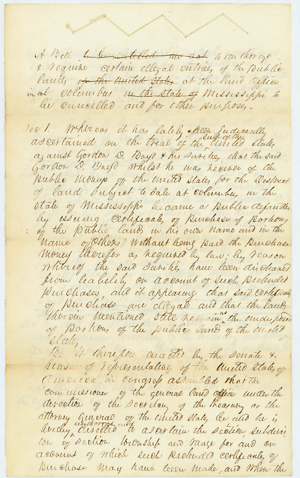 A Bill to be entitled an act to authorize
& require certain illegal entries of the Public
Lands of the United States at the Land office
at Columbus in the State of Mississippi to
be cancelled and for other purposes.
Sec 1. Whereas it has lately been judicially
ascertained on the trial of the suit of the United States
against Gordon D. Boyd & his sureties that the said
Gordon D. Boyd whilst he was receiver of the
public moneys of the United States for the district
of land subject to sale at Columbus in the
State of Mississippi became a public defaulter
by issuing certificates of purchase of portions
of the public lands in his own name and in the
name of others without being paid the purchase
money therefor as required by law; by reason
whereof the said sureties have been discharged
from liability on account of such pretended
purchases, and it appearing that said certificates
of purchase are illegal and that the lands
therein mentioned still remain the undisposed
of portions of the public land of the United
States,
Be it therefore enacted by the Senate &
house of representatives of the United States of
America in Congress assembled that the
commissioner of the general land office under the
direction of the secretary of the Treasury or the
attorney general of the United States be and he is
hereby directed to ascertain the section subdivi
sion of section township and range for and on
account of which such pretended certificates of
purchase may have been made, and when the